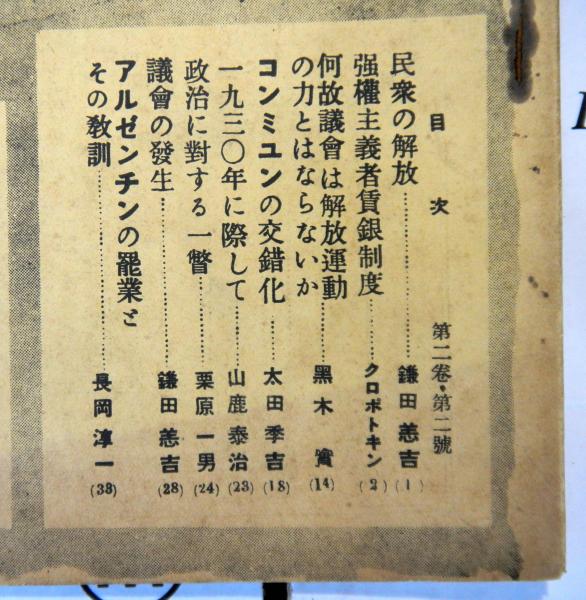 目次 第二卷・第二號
民衆の解放………鎌田恙吉(1)
强權主義者賃銀制度………クロポトキン(2)
何故議會は解放運動
の力とはならないか………黑木實(14)
コンミユンの交錯化………太田季吉(18)
一九三〇年に際して………山鹿泰治(23)
政治に對する一瞥………栗原一男(24)
議會の發生………鎌田恙吉(28)
アルゼンチンの罷業と
その敎訓………長岡淳一(33)